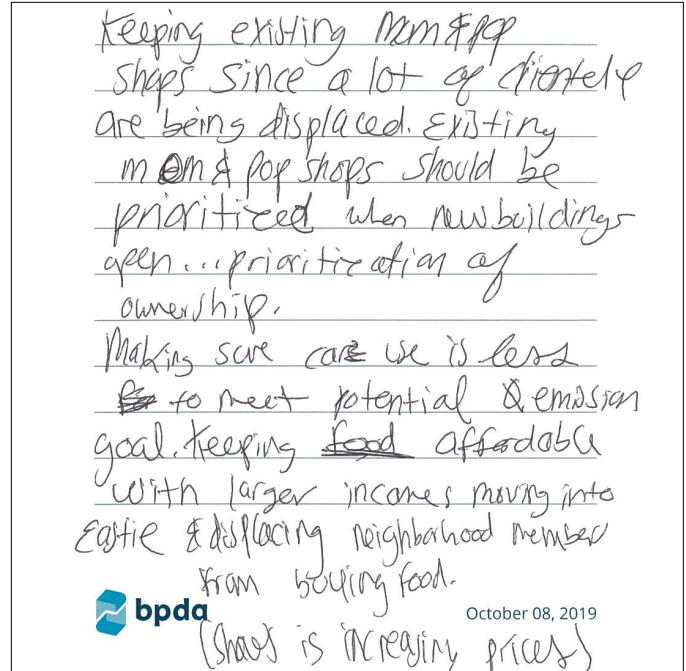 Keeping existing mom & pop
shops since a lot of clientele
are being displaced. Existing
mom & pop shops should be
prioritized when new buildings
open...prioritization of
ownership.
Making sure car use is less
to meet potential 0 emission
goal. Keeping food affordable
with larger incomes moving into
Eastie & displacing neighborhood members
from buying food.
bpda
October 08, 2019
(Shaws is increasing prices)